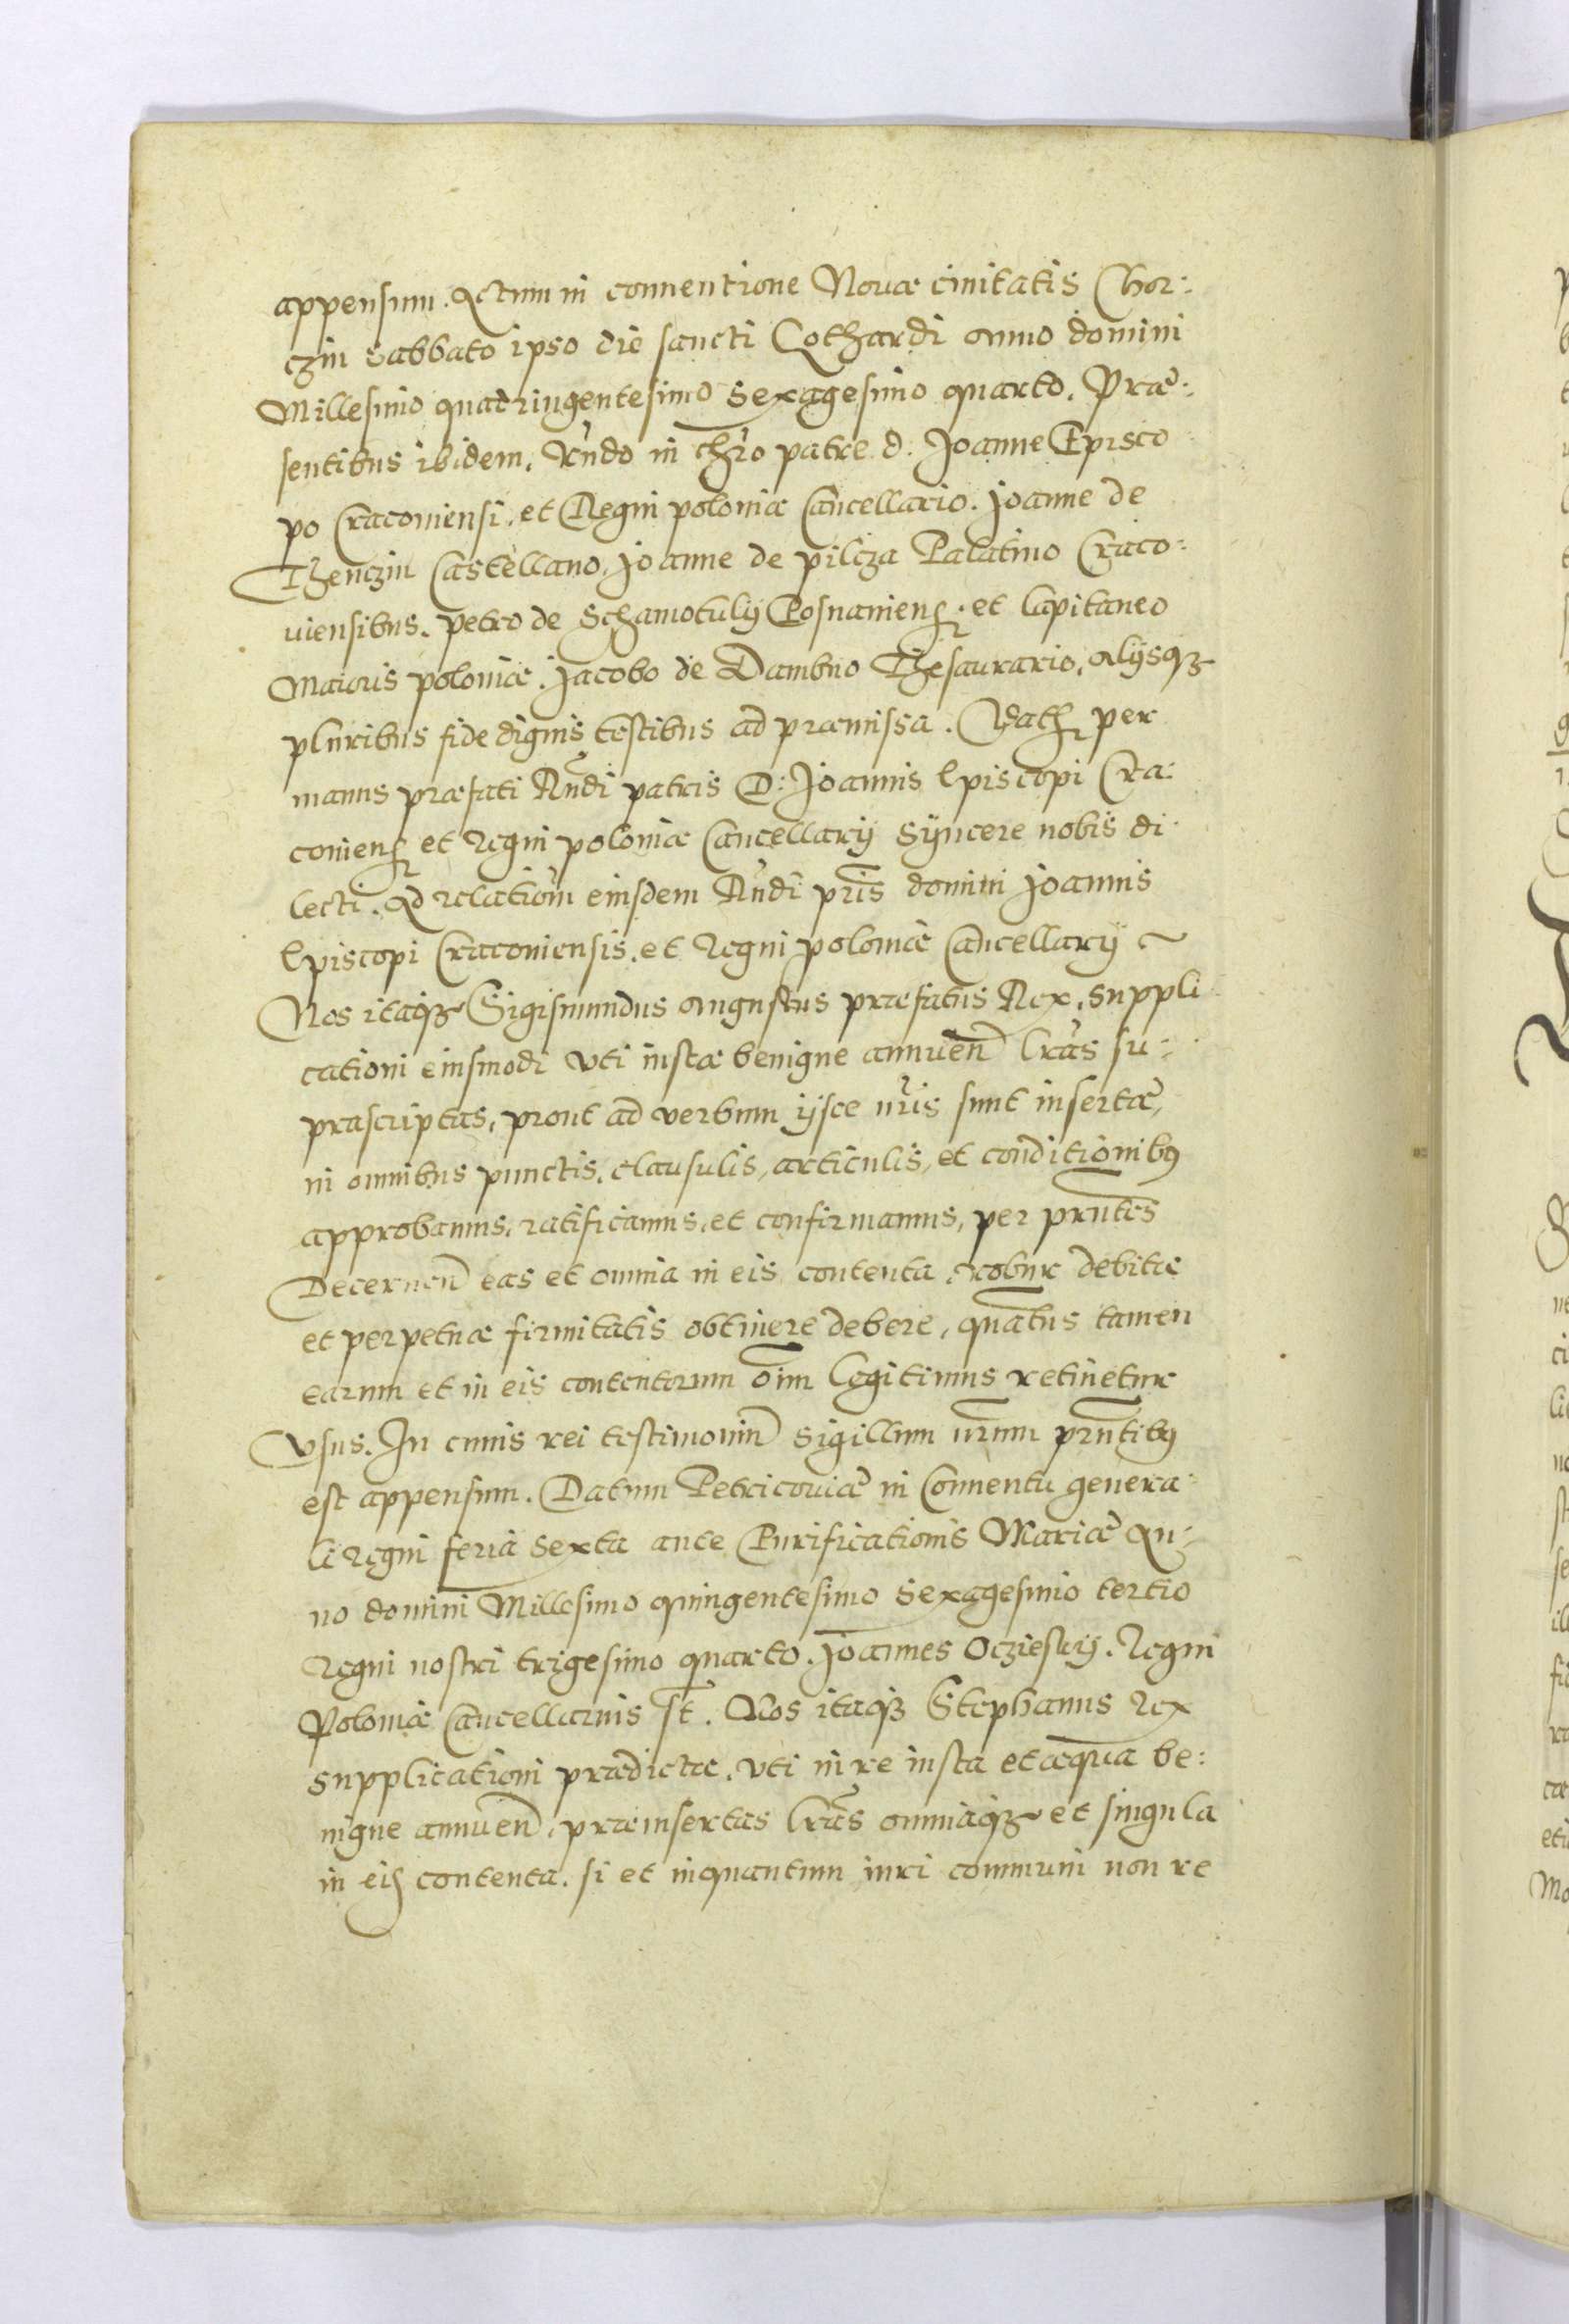 appensum. Actum in conuentione Nouæ ciuitatis Chor:
czin Sabbato ipso die sancti Gothardi anno domini
Millesimo quadringentesimo Sexagesimo quarto. Præ:
sentibus ibidem, Rndo in chro patre d: Joanne Episco
po Cracouiensi, et Regni poloniæ Cancellario. Joanne de
Thenczin Castellano, Joanne de pilcza Palatino Craco:
uiensibus. petro de Schamotulij Posnaniens. et Capitaneo
Maioris poloniæ. Jacobo de Dambno Thesaurario, alijsq3
pluribus fide dignis testibus ad præmissa. Dath per
manus præfati Rndi patris D: Joannis Episcopi Cra:
couiens et regni poloniæ Cancellarij Syncere nobis di
lecti. Ad relatiom eiusdem Rndi pris domini Joannis
Episcopi Cracouiensis, et regni poloniæ Cancellarij ~
Nos itaq3 Sigismundus Augustus præfatus Rex, suppli
cationi eiusmodi vti iustæ benigne annuen lras su:
prascriptas, prout ad verbum ijsce nris sunt insertæ,
in omnibus punctis, clausulis, articulis, et conditionib9
approbamus, ratificamus, et confirmamus, per prntes
Decernen eas et omnia in eis contenta, robur debitæ
et perpetuæ firmitatis obtinere debere, quatnus tamen
earum et in eis contentorum oim legitimus retinetur
vsus. In cuius rei testimonim sigillum nrum prntib9
est appensum. Datum Petricouiæ in Conuentu genera:
li regni feria Sexta ante Purificationis Mariæ An:
no domini Millesimo quingentesimo Sexagesimo tertio
regni nostri trigesimo quarto. Joannes Oczieskij. Regni
Poloniæ Cancellarius st. Nos itaq3 Stephanus rex
supplicationi prædictæ, vti in re iusta et æqua be:
nigne annuen, præinsertas lras omniaq3 et singula
in eis contenta. si et inquantum iuri communi non re